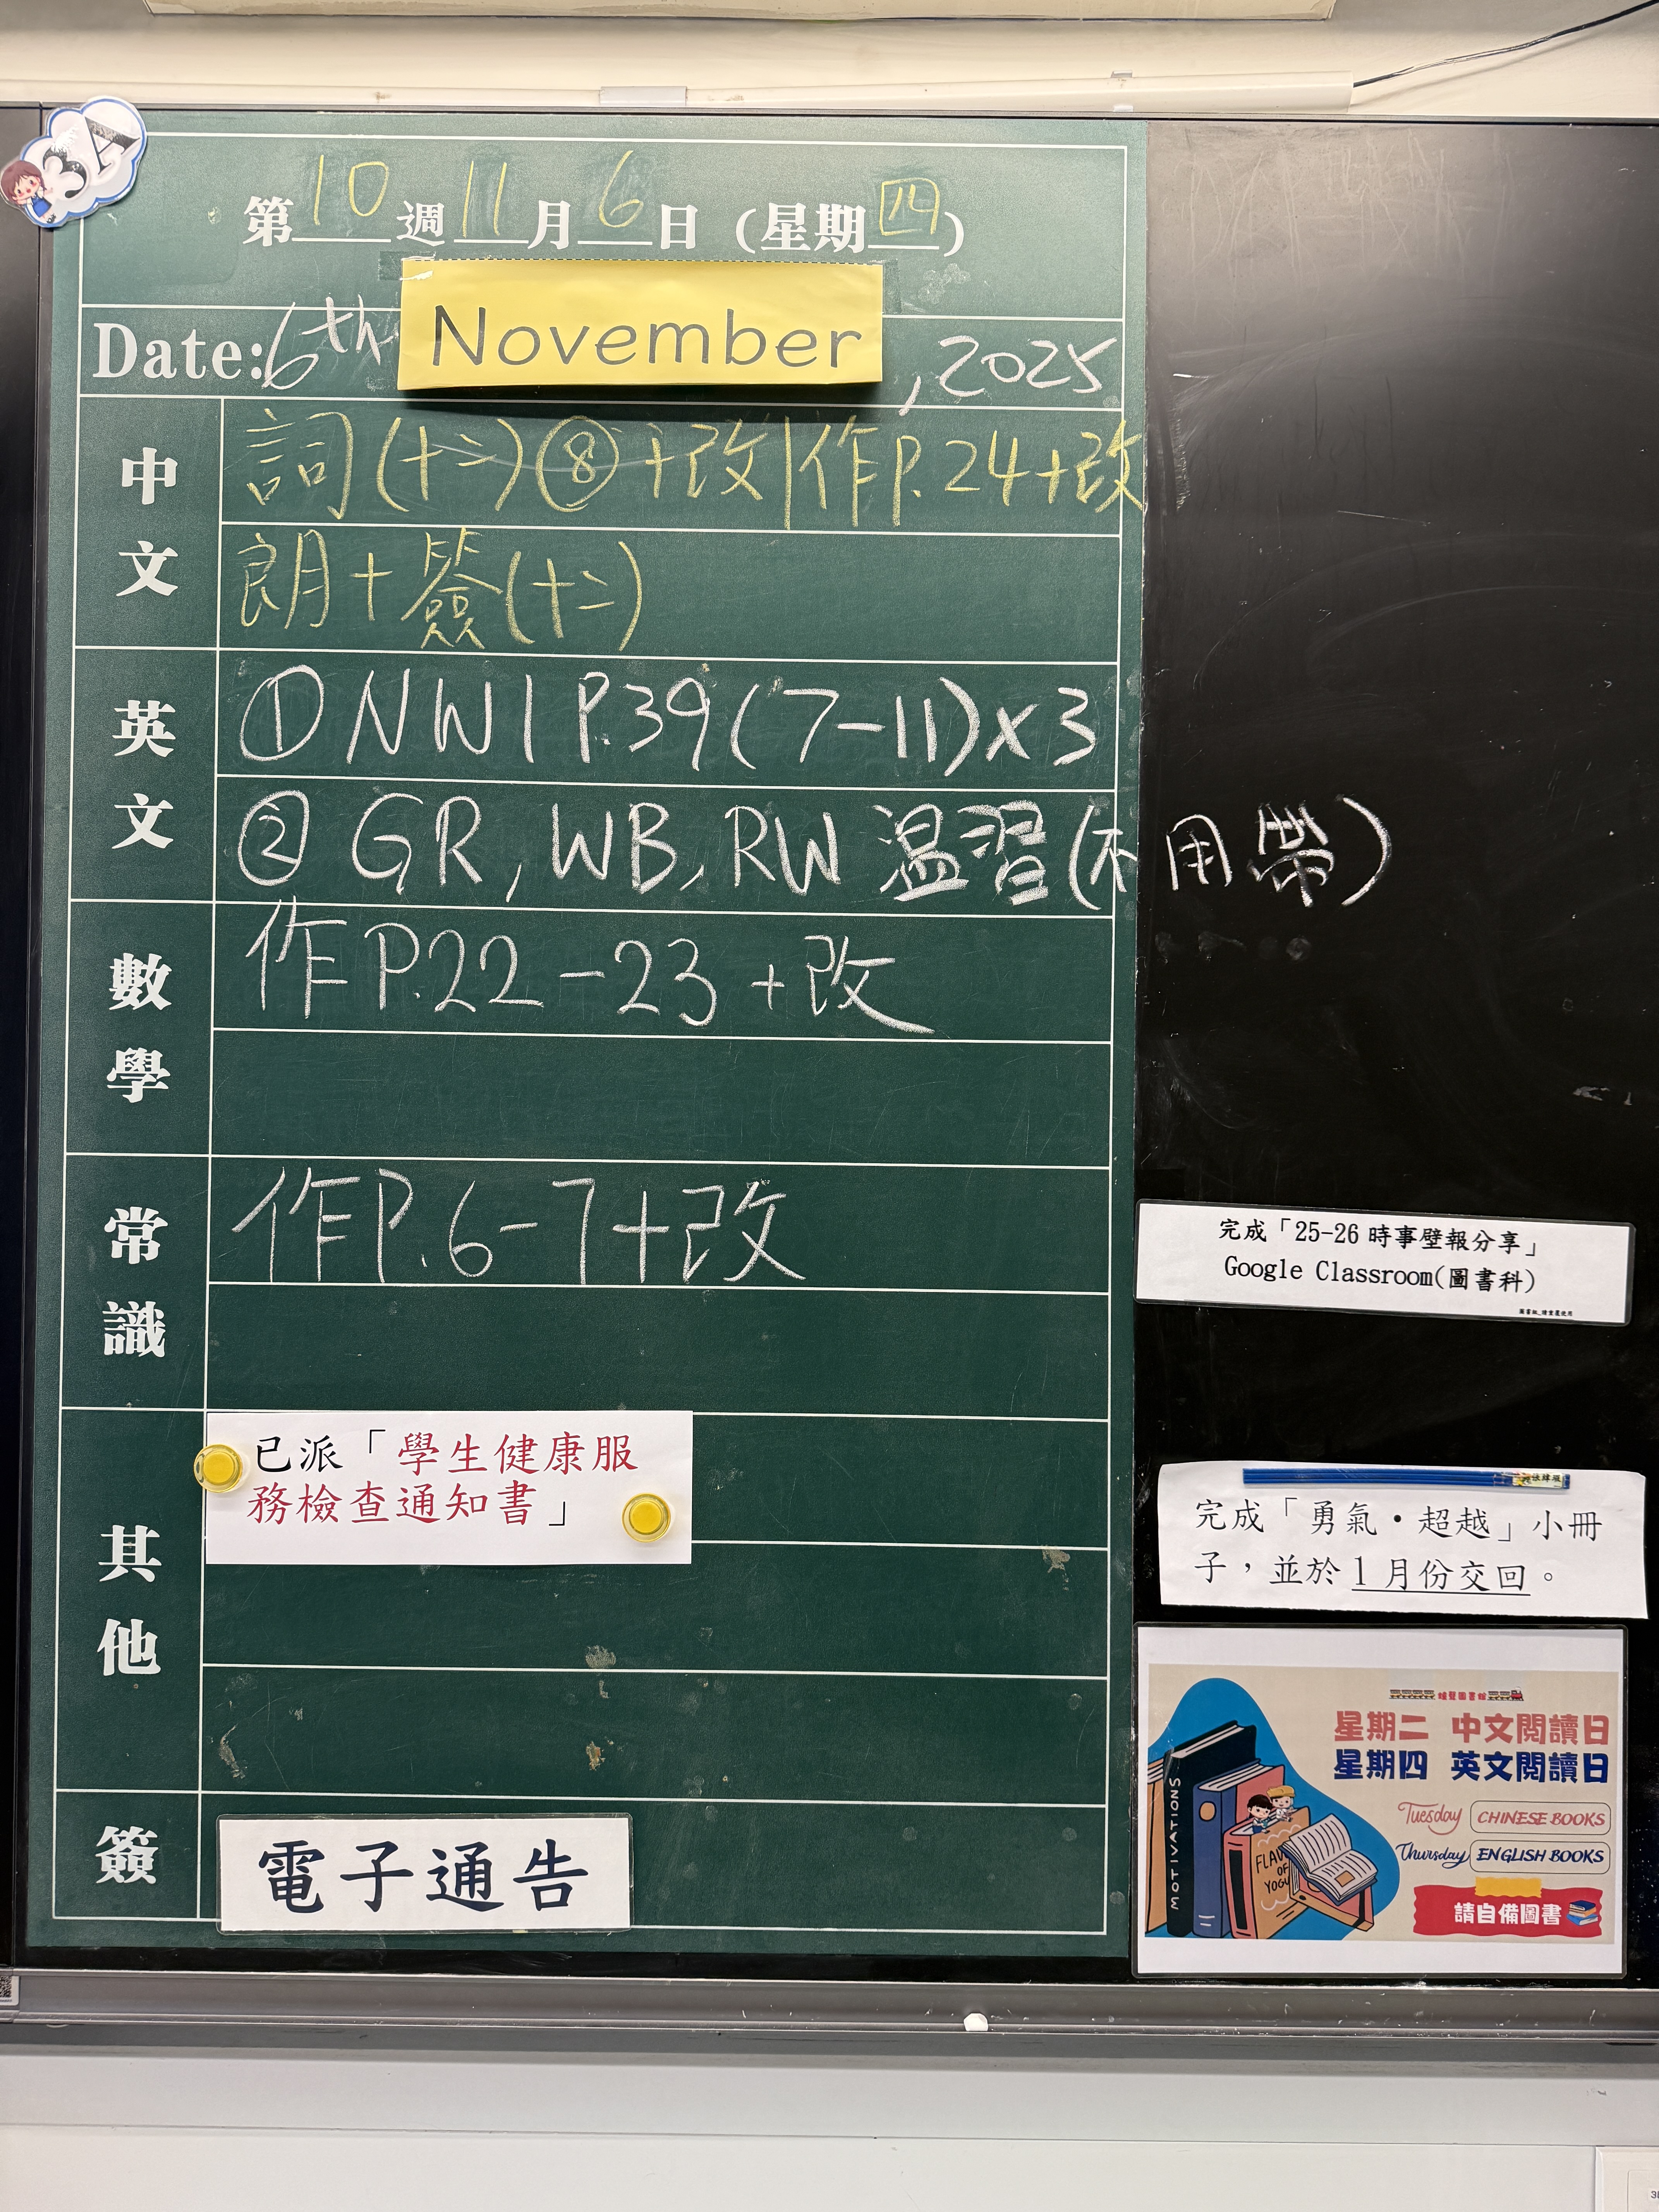 3A
第10週11月6日（星期四）
Date: 6th November, 2025
中文
詞(十二)⑧+改|作P.24+改
朗+簽(十二)
英文
① NW1 P.39(7-11)x3
② GR, WB, RW 温習(不用帶)
數學
作P.22-23+改
常識
作P.6-7+改
其他
已派「學生健康服
務檢查通知書」
簽
電子通告
完成「25-26 時事壁報分享」
Google Classroom(圖書科)
完成「勇氣•超越」小冊
子，並於 1 月份交回。
星期二 中文閱讀日
星期四 英文閱讀日
Tuesday CHINESE BOOKS
Thursday ENGLISH BOOKS
請自備圖書
MOTIVATIONS